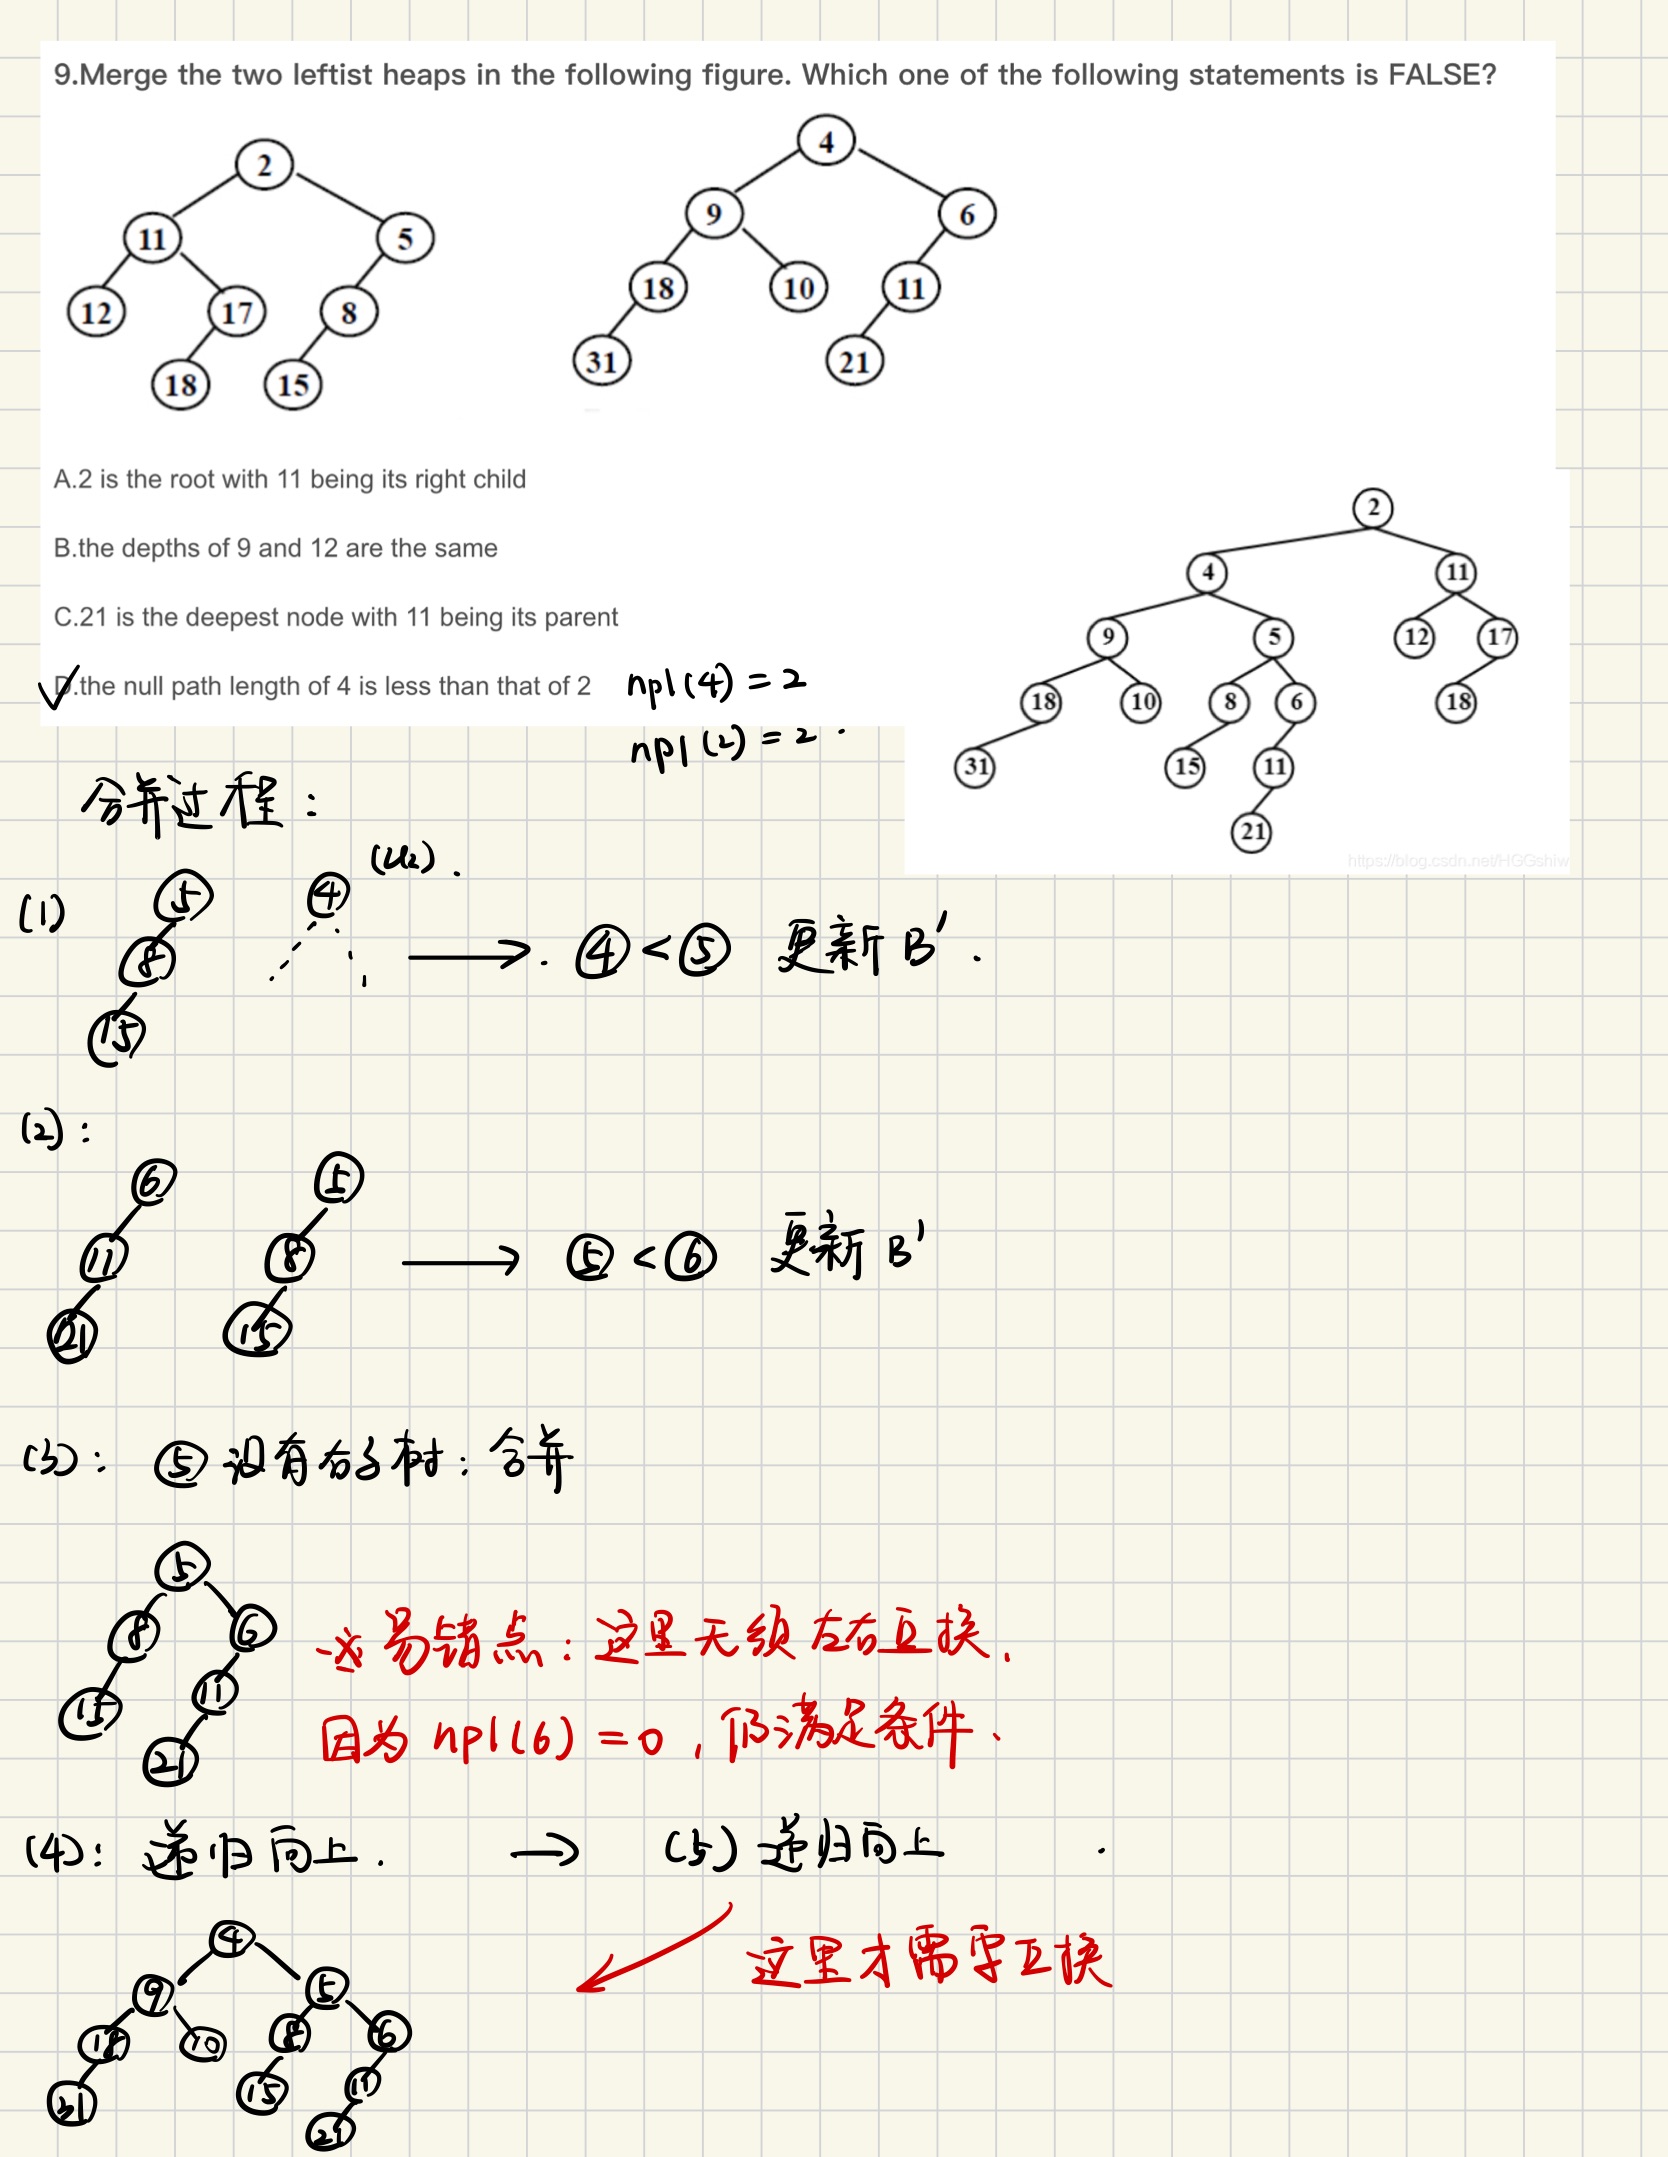 9.Merge the two leftist heaps in the following figure. Which one of the following statements is FALSE?
2
4
11
5
9
6
12
17
8
18
10
11
18
15
31
21
A.2 is the root with 11 being its right child
B.the depths of 9 and 12 are the same
C.21 is the deepest node with 11 being its parent
D.the null path length of 4 is less than that of 2
npl(4) = 2
npl(2) = 2
2
4
11
9
5
12
17
18
10
8
6
18
31
15
11
21
https://blog.csdn.net/HGGshiw
合并过程：
(1)
5
4
8
15
④ < ⑤ 更新 B'.
(2):
6
5
11
8
21
15
⑤ < ⑥ 更新 B'
(3): ⑤ 没有右子树：合并
5
8
6
15
11
21
※ 易错点：这里无须左右互换.
因为 npl(6) = 0, 仍满足条件.
(4): 递归向上. → (5) 递归向上
这里才需要互换
4
9
5
18
10
8
6
31
15
11
21